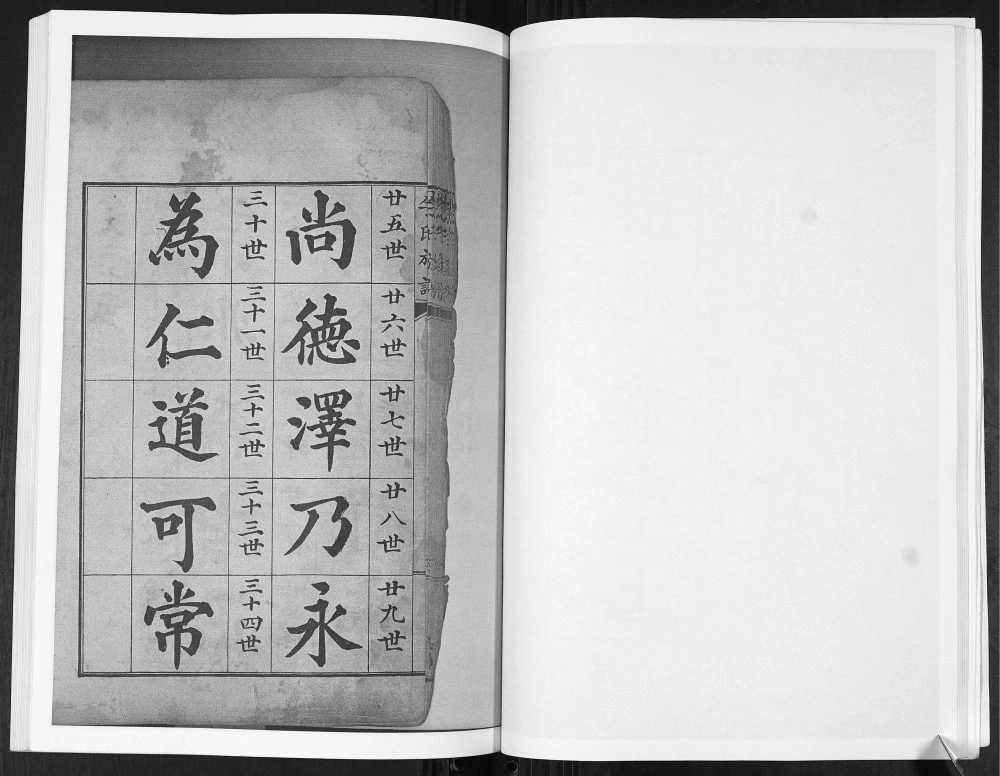 廿五世
廿六世
廿七世
廿八世
廿九世
尚德澤乃永
三十世
三十一世
三十二世
三十三世
三十四世
為仁道可常